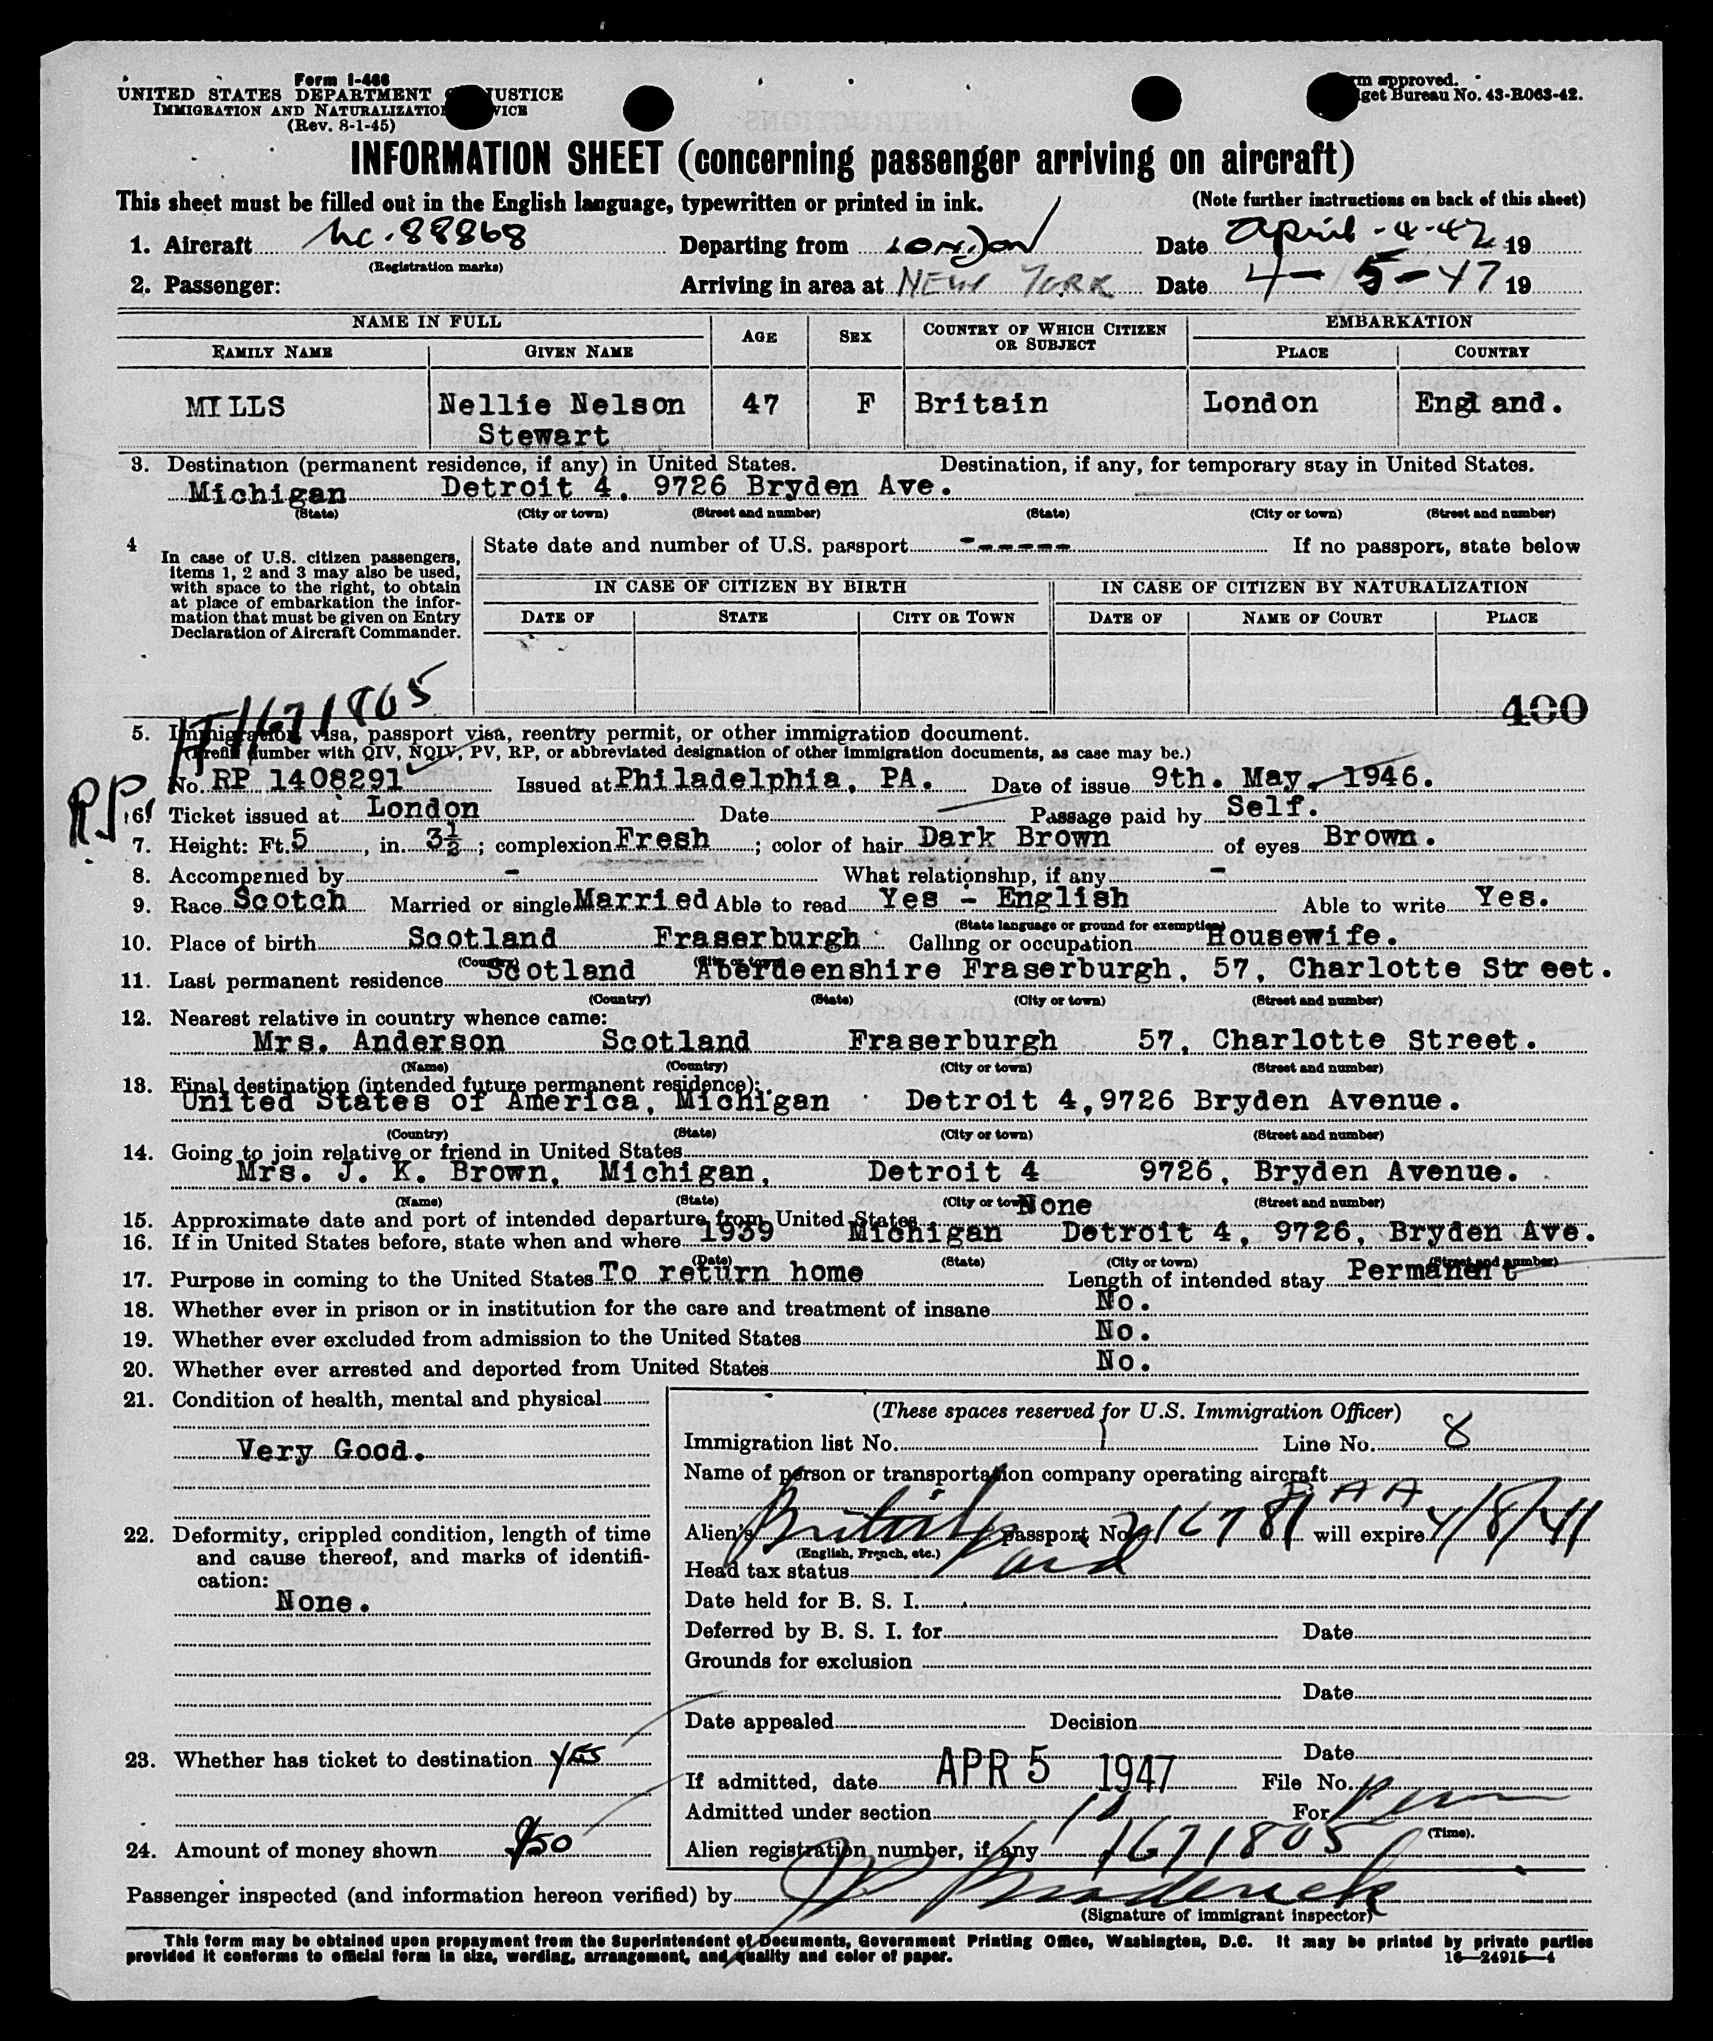 Form I-466
UNITED STATES DEPARTMENT JUSTICE
IMMIGRATION AND NATURALIZATION
(Rev. 8-1-45)
approved.
Bureau No. 43-R063-42.
INFORMATION SHEET (concerning passenger arriving on aircraft)
This sheet must be filled out in the English language, typewritten or printed in ink. (Note further instructions on back of this sheet)
1. Aircraft nc. 88868 Departing from London Date April-4-47 19
(Registration marks)
2. Passenger: Arriving in area at NEW YORK Date 4-5-47 19
NAME IN FULL AGE SEX COUNTRY OF WHICH CITIZEN OR SUBJECT EMBARKATION
FAMILY NAME GIVEN NAME PLACE COUNTRY
MILLS Nellie Nelson 47 F Britain London England.
Stewart
3. Destination (permanent residence, if any) in United States. Destination, if any, for temporary stay in United States.
Michigan Detroit 4, 9726 Bryden Ave.
(State) (City or town) (Street and number) (State) (City or town) (Street and number)
4 In case of U.S. citizen passengers, items 1, 2 and 3 may also be used, with space to the right, to obtain at place of embarkation the information that must be given on Entry Declaration of Aircraft Commander.
State date and number of U.S. passport ------ If no passport, state below
IN CASE OF CITIZEN BY BIRTH IN CASE OF CITIZEN BY NATURALIZATION
DATE OF STATE CITY OR TOWN DATE OF NAME OF COURT PLACE
1671805
400
5. Immigration visa, passport visa, reentry permit, or other immigration document.
(Prefix number with QIV, NQIV, PV, RP, or abbreviated designation of other immigration documents, as case may be.)
No. RP 1408291 Issued at Philadelphia, PA. Date of issue 9th. May, 1946.
RP
6. Ticket issued at London Date Passage paid by Self.
7. Height: Ft. 5, in. 3½; complexion Fresh; color of hair Dark Brown of eyes Brown.
8. Accompanied by - What relationship, if any -
9. Race Scotch Married or single Married Able to read Yes - English Able to write Yes.
(State language or ground for exemption)
10. Place of birth Scotland Fraserburgh Calling or occupation Housewife.
(Country) (City or town)
11. Last permanent residence Scotland Aberdeenshire Fraserburgh, 57, Charlotte Street.
(Country) (State) (City or town) (Street and number)
12. Nearest relative in country whence came:
Mrs. Anderson Scotland Fraserburgh 57, Charlotte Street.
(Name) (Country) (City or town) (Street and number)
13. Final destination (intended future permanent residence):
United States of America, Michigan Detroit 4,9726 Bryden Avenue.
(Country) (State) (City or town) (Street and number)
14. Going to join relative or friend in United States
Mrs. J. K. Brown, Michigan, Detroit 4 9726, Bryden Avenue.
(Name) (State) (City or town) (Street and number)
15. Approximate date and port of intended departure from United States None
16. If in United States before, state when and where 1939 Michigan Detroit 4, 9726, Bryden Ave.
(Date) (State) (City or town) (Street and number)
17. Purpose in coming to the United States To return home Length of intended stay Permanent
18. Whether ever in prison or in institution for the care and treatment of insane No.
19. Whether ever excluded from admission to the United States No.
20. Whether ever arrested and deported from United States No.
21. Condition of health, mental and physical
Very Good.
22. Deformity, crippled condition, length of time
and cause thereof, and marks of identifi-
cation:
None.
23. Whether has ticket to destination YES
24. Amount of money shown $50
(These spaces reserved for U.S. Immigration Officer)
Immigration list No. 1 Line No. 8
Name of person or transportation company operating aircraft
Alien's British passport No. will expire
(English, French, etc.)
Head tax status Paid
Date held for B. S. I.
Deferred by B. S. I. for Date
Grounds for exclusion
Date
Date appealed Decision
Date
If admitted, date APR 5 1947 File No.
Admitted under section For Perm
(Time).
Alien registration number, if any 1671805
Passenger inspected (and information hereon verified) by Broderick
(Signature of immigrant inspector)
This form may be obtained upon prepayment from the Superintendent of Documents, Government Printing Office, Washington, D.C. It may be printed by private parties
provided it conforms to official form in size, wording, arrangement, and quality and color of paper.
16—24915-4